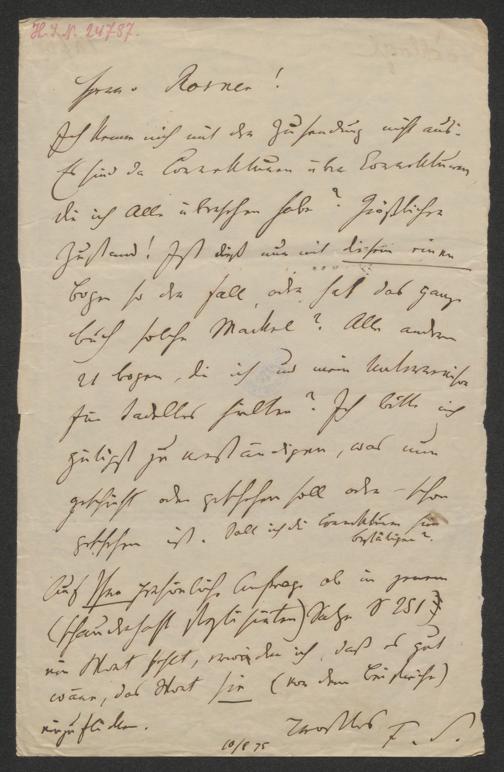 H.I.N. 24787.
Herr Rosner!
Ich komme mich mit der Zusendung nicht aus.
Es sind da Correkturen über Correkturen
die ich Alle übersehen habe? Gräßlicher
Zustand! Ist dieß nur mit diesem einen
Bogen so der Fall, oder hat das ganze
Buch solche Mackel? Alle andern
21 Bogen, die ich und mein
für tadellos hielten? Ich bitte mich
gütigst zu verständigen, was nun
geschieht oder geschehen soll oder – schon
geschehen ist. Soll ich die Correkturen
bestätigen?
Auf Ihre persönliche Anfrage ob in jenem
(schauderhaft stylisirten) Satze S 251
ein Wort fehlt, erwidere ich, daß es gut
wäre, das Wort sie (vor dem)
einzuflicken.
F. S.
10/8 75